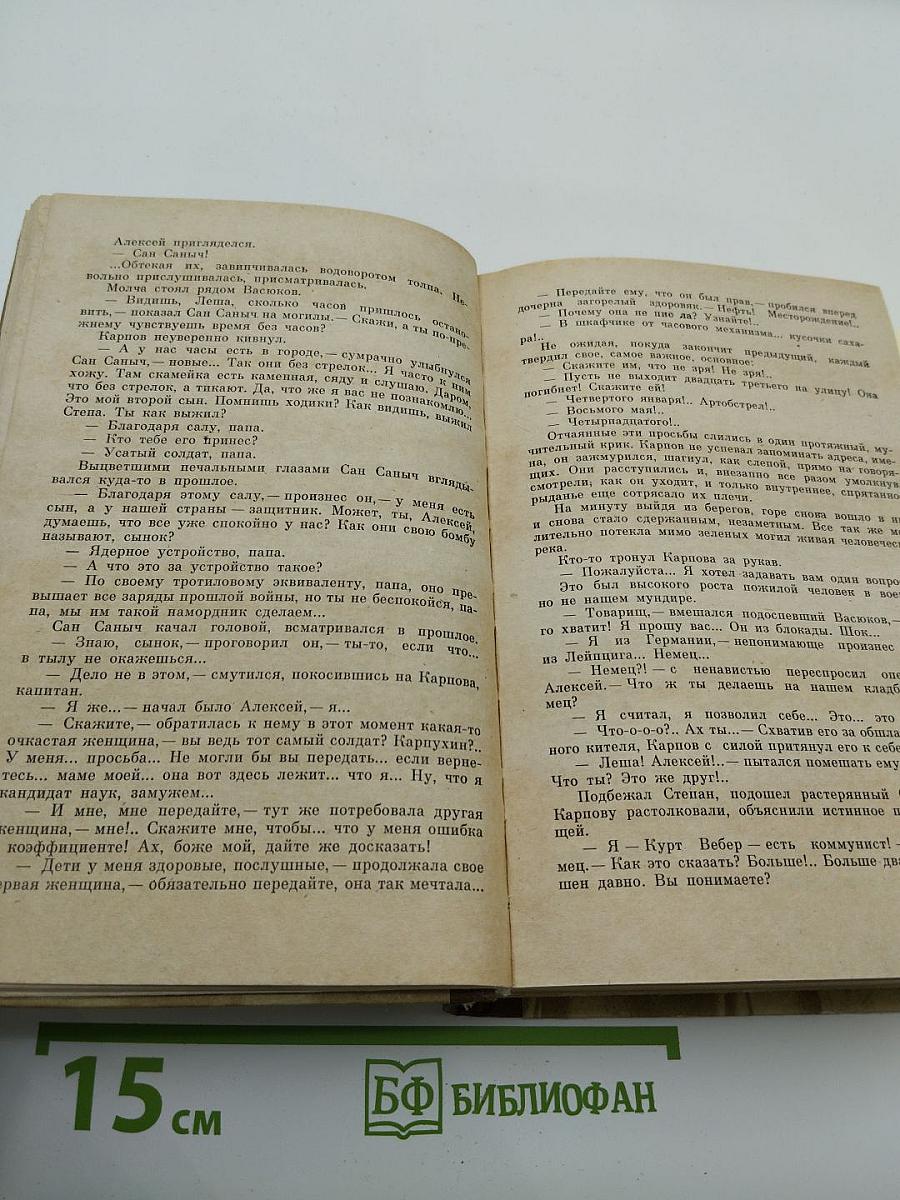 Алексей пригляделся.
— Сан Саныч!
...Обтекая их, завинчивалась водоворотом толпа. Не-
вольно прислушивалась, присматривалась.
Молча стоял рядом Васюков.
— Видишь, Леша, сколько часов пришлось остано-
вить,— показал Сан Саныч на могилы.— Скажи, а ты по-пре-
жнему чувствуешь время без часов?
Карпов неуверенно кивнул.
— А у нас часы есть в городе,— сумрачно улыбнулся
Сан Саныч,— новые... Так они без стрелок... Я часто к ним
хожу. Там скамейка есть каменная, сяду и слушаю. Даром,
что без стрелок, а тикают. Да, что же я вас не познакомлю...
Это мой второй сын. Помнишь ходики? Как видишь, выжил
Степа. Ты как выжил?
— Благодаря салу, папа.
— Кто тебе его принес?
— Усатый солдат, папа.
Выцветшими печальными глазами Сан Саныч вгляды-
вался куда-то в прошлое.
— Благодаря этому салу,— произнес он,— у меня есть
сын, а у нашей страны — защитник. Может, ты, Алексей,
думаешь, что все уже спокойно у нас? Как они свою бомбу
называют, сынок?
— Ядерное устройство, папа.
— А что это за устройство такое?
— По своему тротиловому эквиваленту, папа, оно пре-
вышает все заряды прошлой войны, но ты не беспокойся, па-
па, мы им такой намордник сделаем...
Сан Саныч качал головой, всматривался в прошлое.
— Знаю, сынок,— проговорил он,— ты-то, если что...
в тылу не окажешься...
— Дело не в этом,— смутился, покосившись на Карпова,
капитан.
— Я же...— начал было Алексей,— я...
— Скажите,— обратилась к нему в этот момент какая-то
очкастая женщина,— вы ведь тот самый солдат? Карпухин?..
У меня... просьба... Не могли бы вы передать... если верне-
тесь... маме моей... она вот здесь лежит... что я... Ну, что я
кандидат наук, замужем...
— И мне, мне передайте,— тут же потребовала другая
женщина,— мне!.. Скажите мне, чтобы... что у меня ошибка
коэффициенте! Ах, боже мой, дайте же досказать!
— Дети у меня здоровые, послушные,— продолжала свое
ервая женщина,— обязательно передайте, она так мечтала...
— Передайте ему, что он был прав,— пробился вперед
дочерна загорелый здоровяк.— Нефть! Месторождение!..
— Почему она не пи ла? Узнайте!..
— В шкафчике от часового механизма... кусочки саха-
ра!..
Не ожидая, покуда закончит предыдущий, каждый
твердил свое, самое важное, основное:
— Скажите им, что не зря! Не зря!..
— Пусть не выходит двадцать третьего на улицу! Она
погибнет! Скажите ей!
— Четвертого января!.. Артобстрел!..
— Восьмого мая!..
— Четырнадцатого!..
Отчаянные эти просьбы слились в один протяжный, му-
чительный крик. Карпов не успевал запоминать адреса, име-
на, он зажмурился, шагнул, как слепой, прямо на говоря-
щих. Они расступились и, внезапно все разом умолкнув
смотрели; как он уходит, и только внутреннее, спрятанно
рыданье еще сотрясало их плечи.
На минуту выйдя из берегов, горе снова вошло в н
и снова стало сдержанным, незаметным. Все так же м
лительно потекла мимо зеленых могил живая человечес
река.
Кто-то тронул Карпова за рукав.
— Пожалуйста... Я хотел задавать вам один вопро
Это был высокого роста пожилой человек в вое
но не нашем мундире.
— Товарищ,— вмешался подоспевший Васюков,—
го хватит! Я прошу вас... Он из блокады. Шок...
— Я из Германии,— непонимающе произнес
из Лейпцига... Немец...
— Немец?! — с ненавистью переспросил опе
Алексей.— Что ж ты делаешь на нашем кладб
мец?
— Я считал, я позволил себе... Это... это
— Что-о-о-о?.. Ах ты...— Схватив его за обшла
ного кителя, Карпов с силой притянул его к себе
— Леша! Алексей!..— пытался помешать ему
Что ты? Это же друг!..
Подбежал Степан, подошел растерянный
Карпову растолковали, объяснили истинное п
щей.
— Я — Курт Вебер — есть коммунист! —
мец.— Как это сказать? Больше!.. Больше два
шен давно. Вы понимаете?
15 см
БФ БИБЛИОФАН